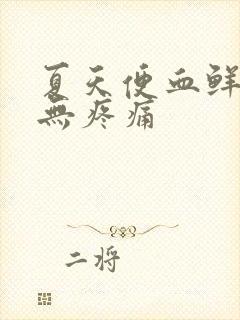 夏天便血鲜
無疼痛
二将